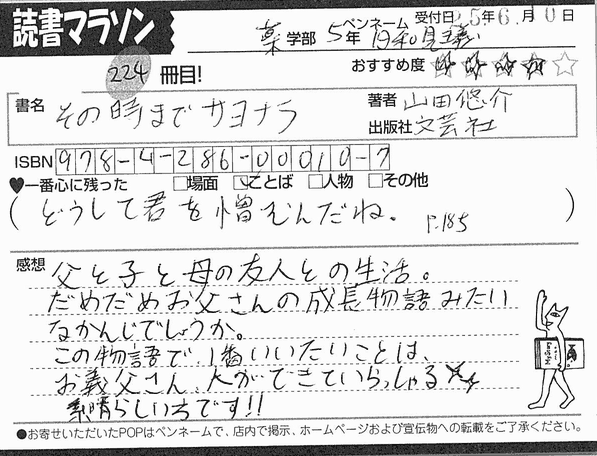 読書マラソン
ペンネーム 受付日 25年6月10日
薬学部 5年 日和見主義
224冊目!
おすすめ度 ★★★★☆
書名 その時までサヨナラ
著者 山田悠介
出版社 文芸社
ISBN 978-4-286-00010-7
♥一番心に残った □場面 ☑ことば □人物 □その他
(どうして君を憎むんだね。 P.185)
感想 父と子と母の友人との生活。
だめだめお父さんの成長物語みたい
なかんじでしょうか。
この物語で1番いいたいことは、
お義父さん、人ができていらっしゃる
素晴らしい方です!!
●お寄せいただいたPOPはペンネームで、店内で掲示、ホームページおよび宣伝物への転載をご了承ください。